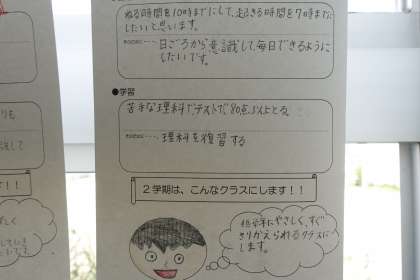 ねる時間を10時までにして、起きる時間を7時までに
したいと思います。
そのために・・・・日ごろから意識して、毎日できるように
したいです。
●学習
苦手な理科で、テストで、80点以上とる。
そのために・・・・理科を復習する
2学期は、こんなクラスにします!!
他学年にやさしく、すぐ
きりかえられるクラスに
します。